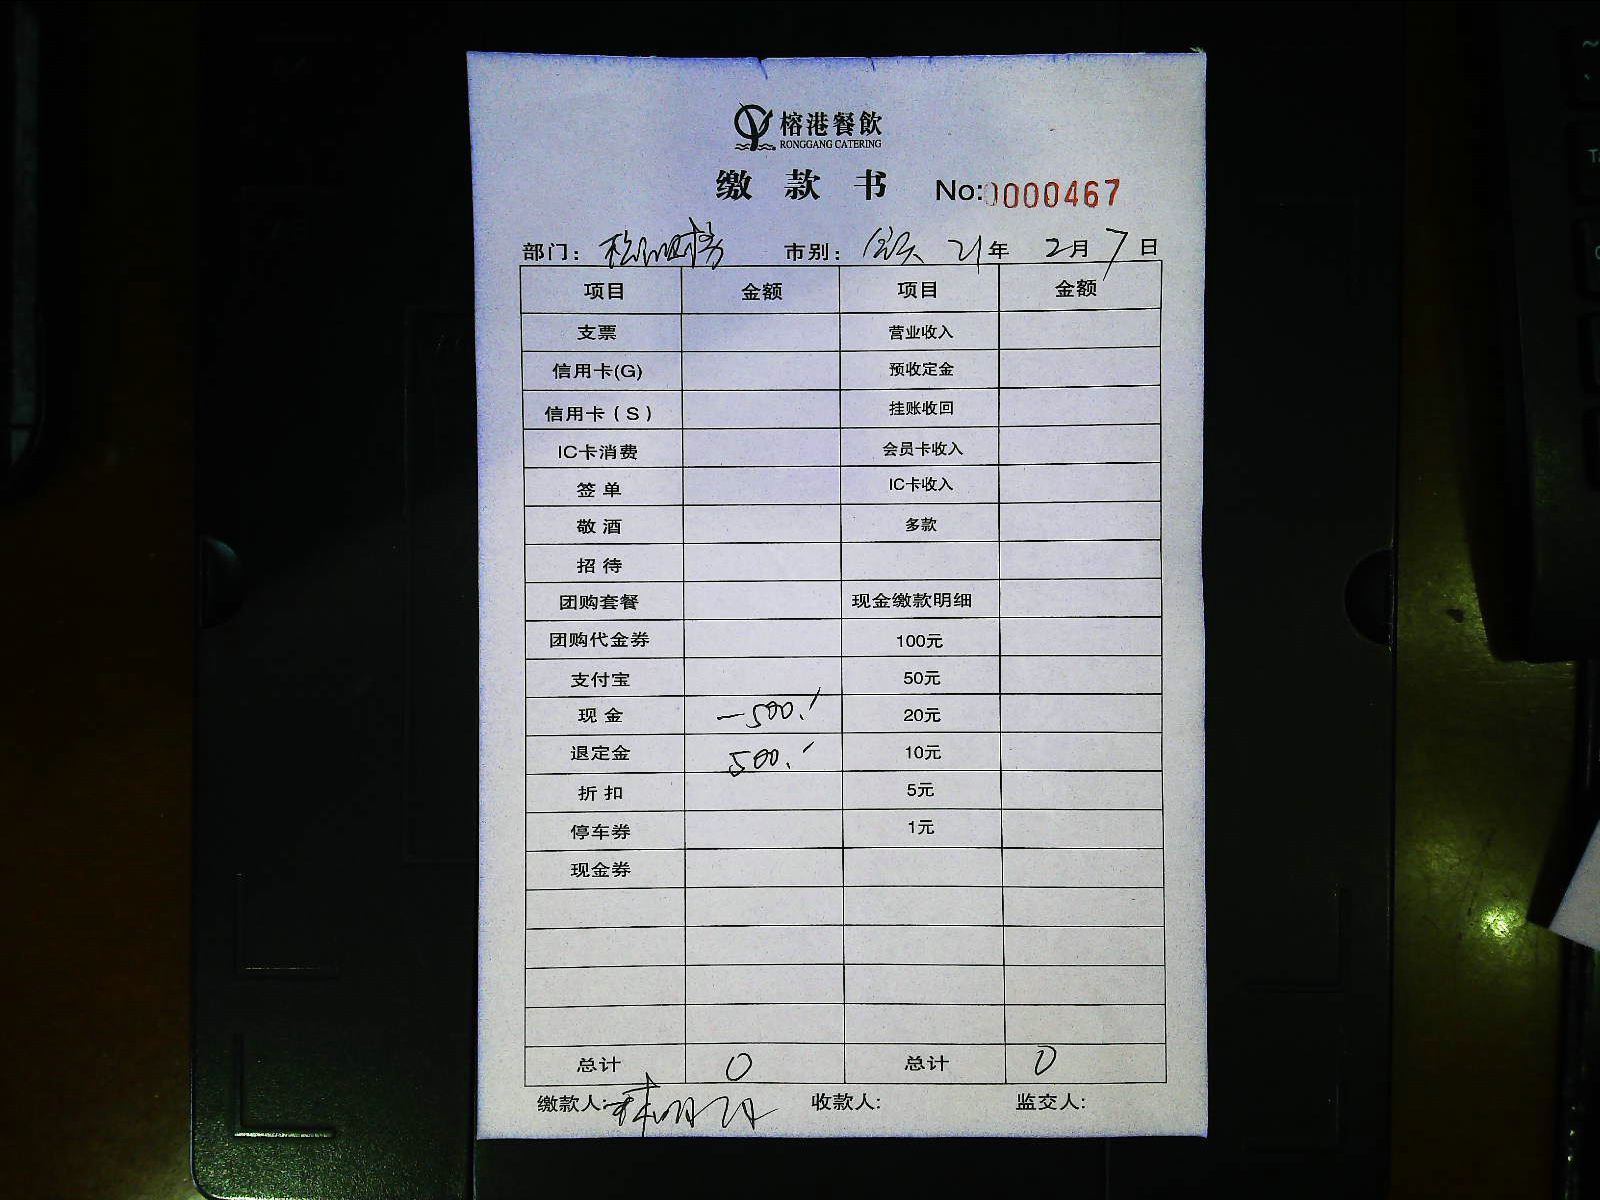 榕港餐飲
RONGGANG CATERING
缴 款 书 No:0000467
部门: 市别: 21年 2月 7日
项目 金额 项目 金额
支票 营业收入
信用卡(G) 预收定金
信用卡(S) 挂账收回
IC卡消费 会员卡收入
签单 IC卡收入
敬酒 多款
招待
团购套餐 现金缴款明细
团购代金券 100元
支付宝 50元
现金 -500.- 20元
退定金 500.- 10元
折扣 5元
停车券 1元
现金券
总计 0 总计 0
缴款人: 收款人: 监交人: